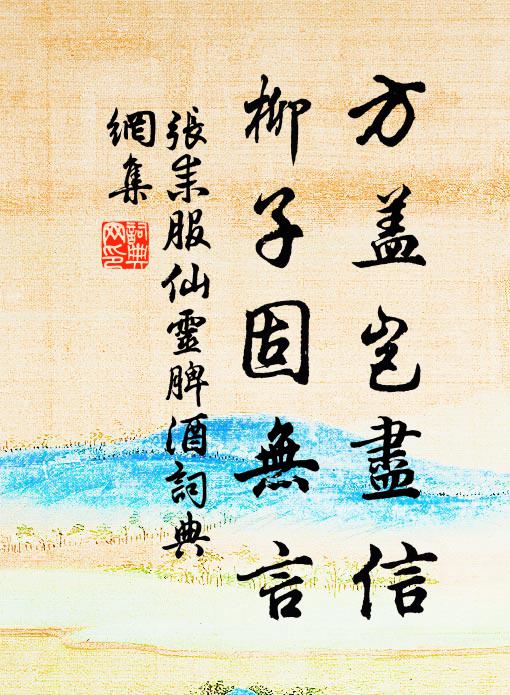 方蓋岂盡信
柳子固無言
張耒服仙靈脾酒詞典
網集
詞典
网印